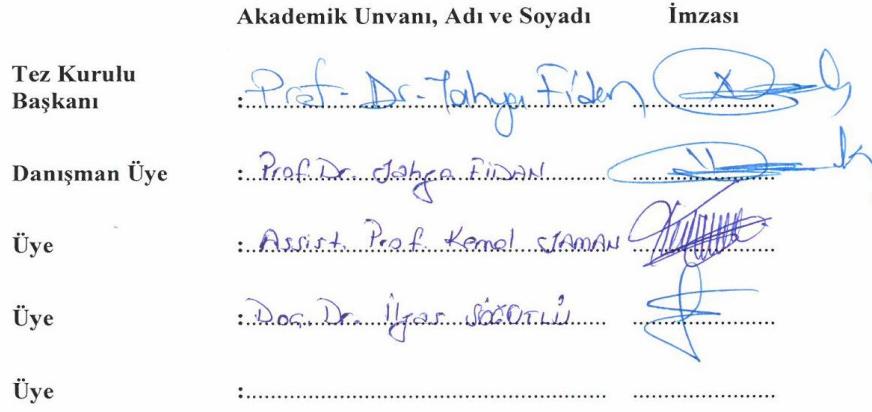 Akademik Unvanı, Adı ve Soyadı İmzası
Tez Kurulu
Başkanı : Prof. Dr. Yahya Fidan
Danışman Üye : Prof. Dr. Yahya FİDAN
Üye : Assist. Prof. Kemal YAMAN
Üye : Doç. Dr. İlyas SÖĞÜTLÜ
Üye :